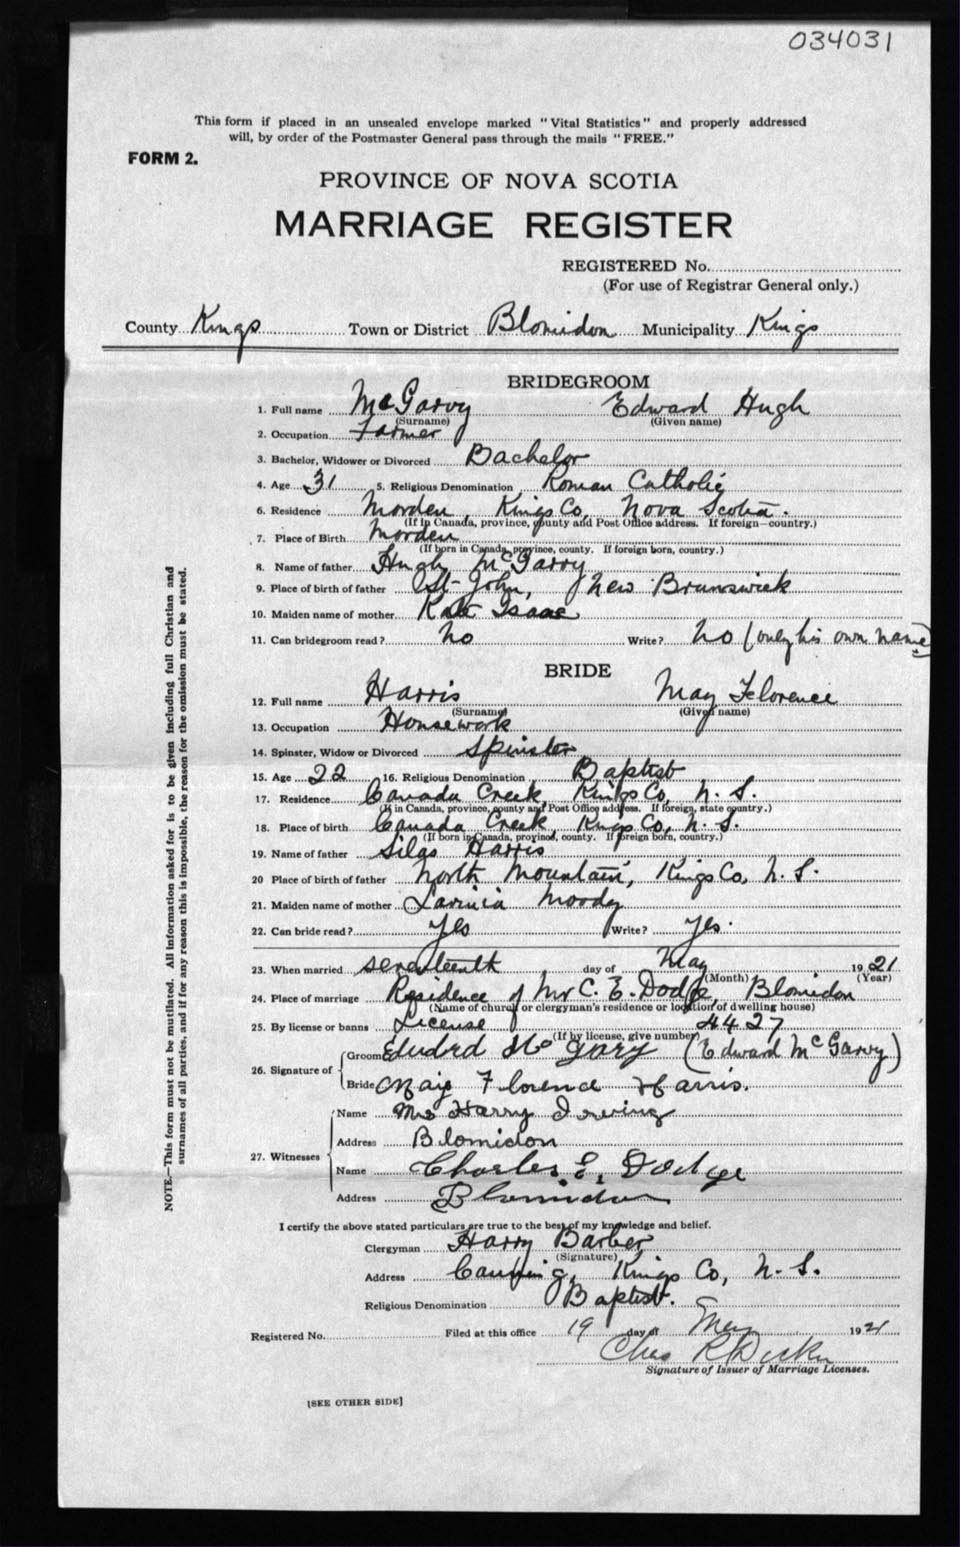 034031
This form if placed in an unsealed envelope marked "Vital Statistics" and properly addressed
will, by order of the Postmaster General pass through the mails "FREE."
FORM 2.
PROVINCE OF NOVA SCOTIA
MARRIAGE REGISTER
REGISTERED No.
(For use of Registrar General only.)
County Kings Town or District Blomidon Municipality Kings
BRIDEGROOM
1. Full name McGarvy Edward Hugh
(Surname) (Given name)
2. Occupation Farmer
3. Bachelor, Widower or Divorced Bachelor
4. Age 31 5. Religious Denomination Roman Catholic
6. Residence Morden, Kings Co, Nova Scotia.
(If in Canada, province, county and Post Office address. If foreign—country.)
7. Place of Birth Morden
(If born in Canada, province, county. If foreign born, country.)
8. Name of father Hugh McGarry
9. Place of birth of father St John, New Brunswick
10. Maiden name of mother Kate Isaac
11. Can bridegroom read? No Write? No (only his own name)
BRIDE
12. Full name Harris May Florence
(Surname) (Given name)
13. Occupation Housework
14. Spinster, Widow or Divorced Spinster
15. Age 22 16. Religious Denomination Baptist
17. Residence Canada Creek, Kings Co, N. S.
(If in Canada, province, county and Post Office address. If foreign, state country.)
18. Place of birth Canada Creek, Kings Co, N. S.
(If born in Canada, province, county. If foreign born, country.)
19. Name of father Silas Harris
20 Place of birth of father North Mountain, Kings Co, N. S.
21. Maiden name of mother Lavinia Moody
22. Can bride read? Yes Write? Yes.
23. When married seventeenth day of May 1921
(Month) (Year)
24. Place of marriage Residence of Mr C. E. Dodge, Blomidon
(Name of church or clergyman's residence or location of dwelling house)
25. By license or banns License 4427
(If by license, give number)
26. Signature of
Groom Eduard Mc Gary (Edward McGarvy)
Bride May Florence Harris.
27. Witnesses
Name Mrs Harry Irwing
Address Blomidon
Name Charles E, Dodge
Address Blomidon
I certify the above stated particulars are true to the best of my knowledge and belief.
Clergyman Harry Barber
(Signature)
Address Canning, Kings Co, N. S.
Religious Denomination Baptist.
Registered No. Filed at this office 19 day of May 1921
Chas R
Signature of Issuer of Marriage Licenses.
[SEE OTHER SIDE]
NOTE.—This form must not be mutilated. All information asked for is to be given including full Christian and
surnames of all parties, and if for any reason this is impossible, the reason for the omission must be stated.